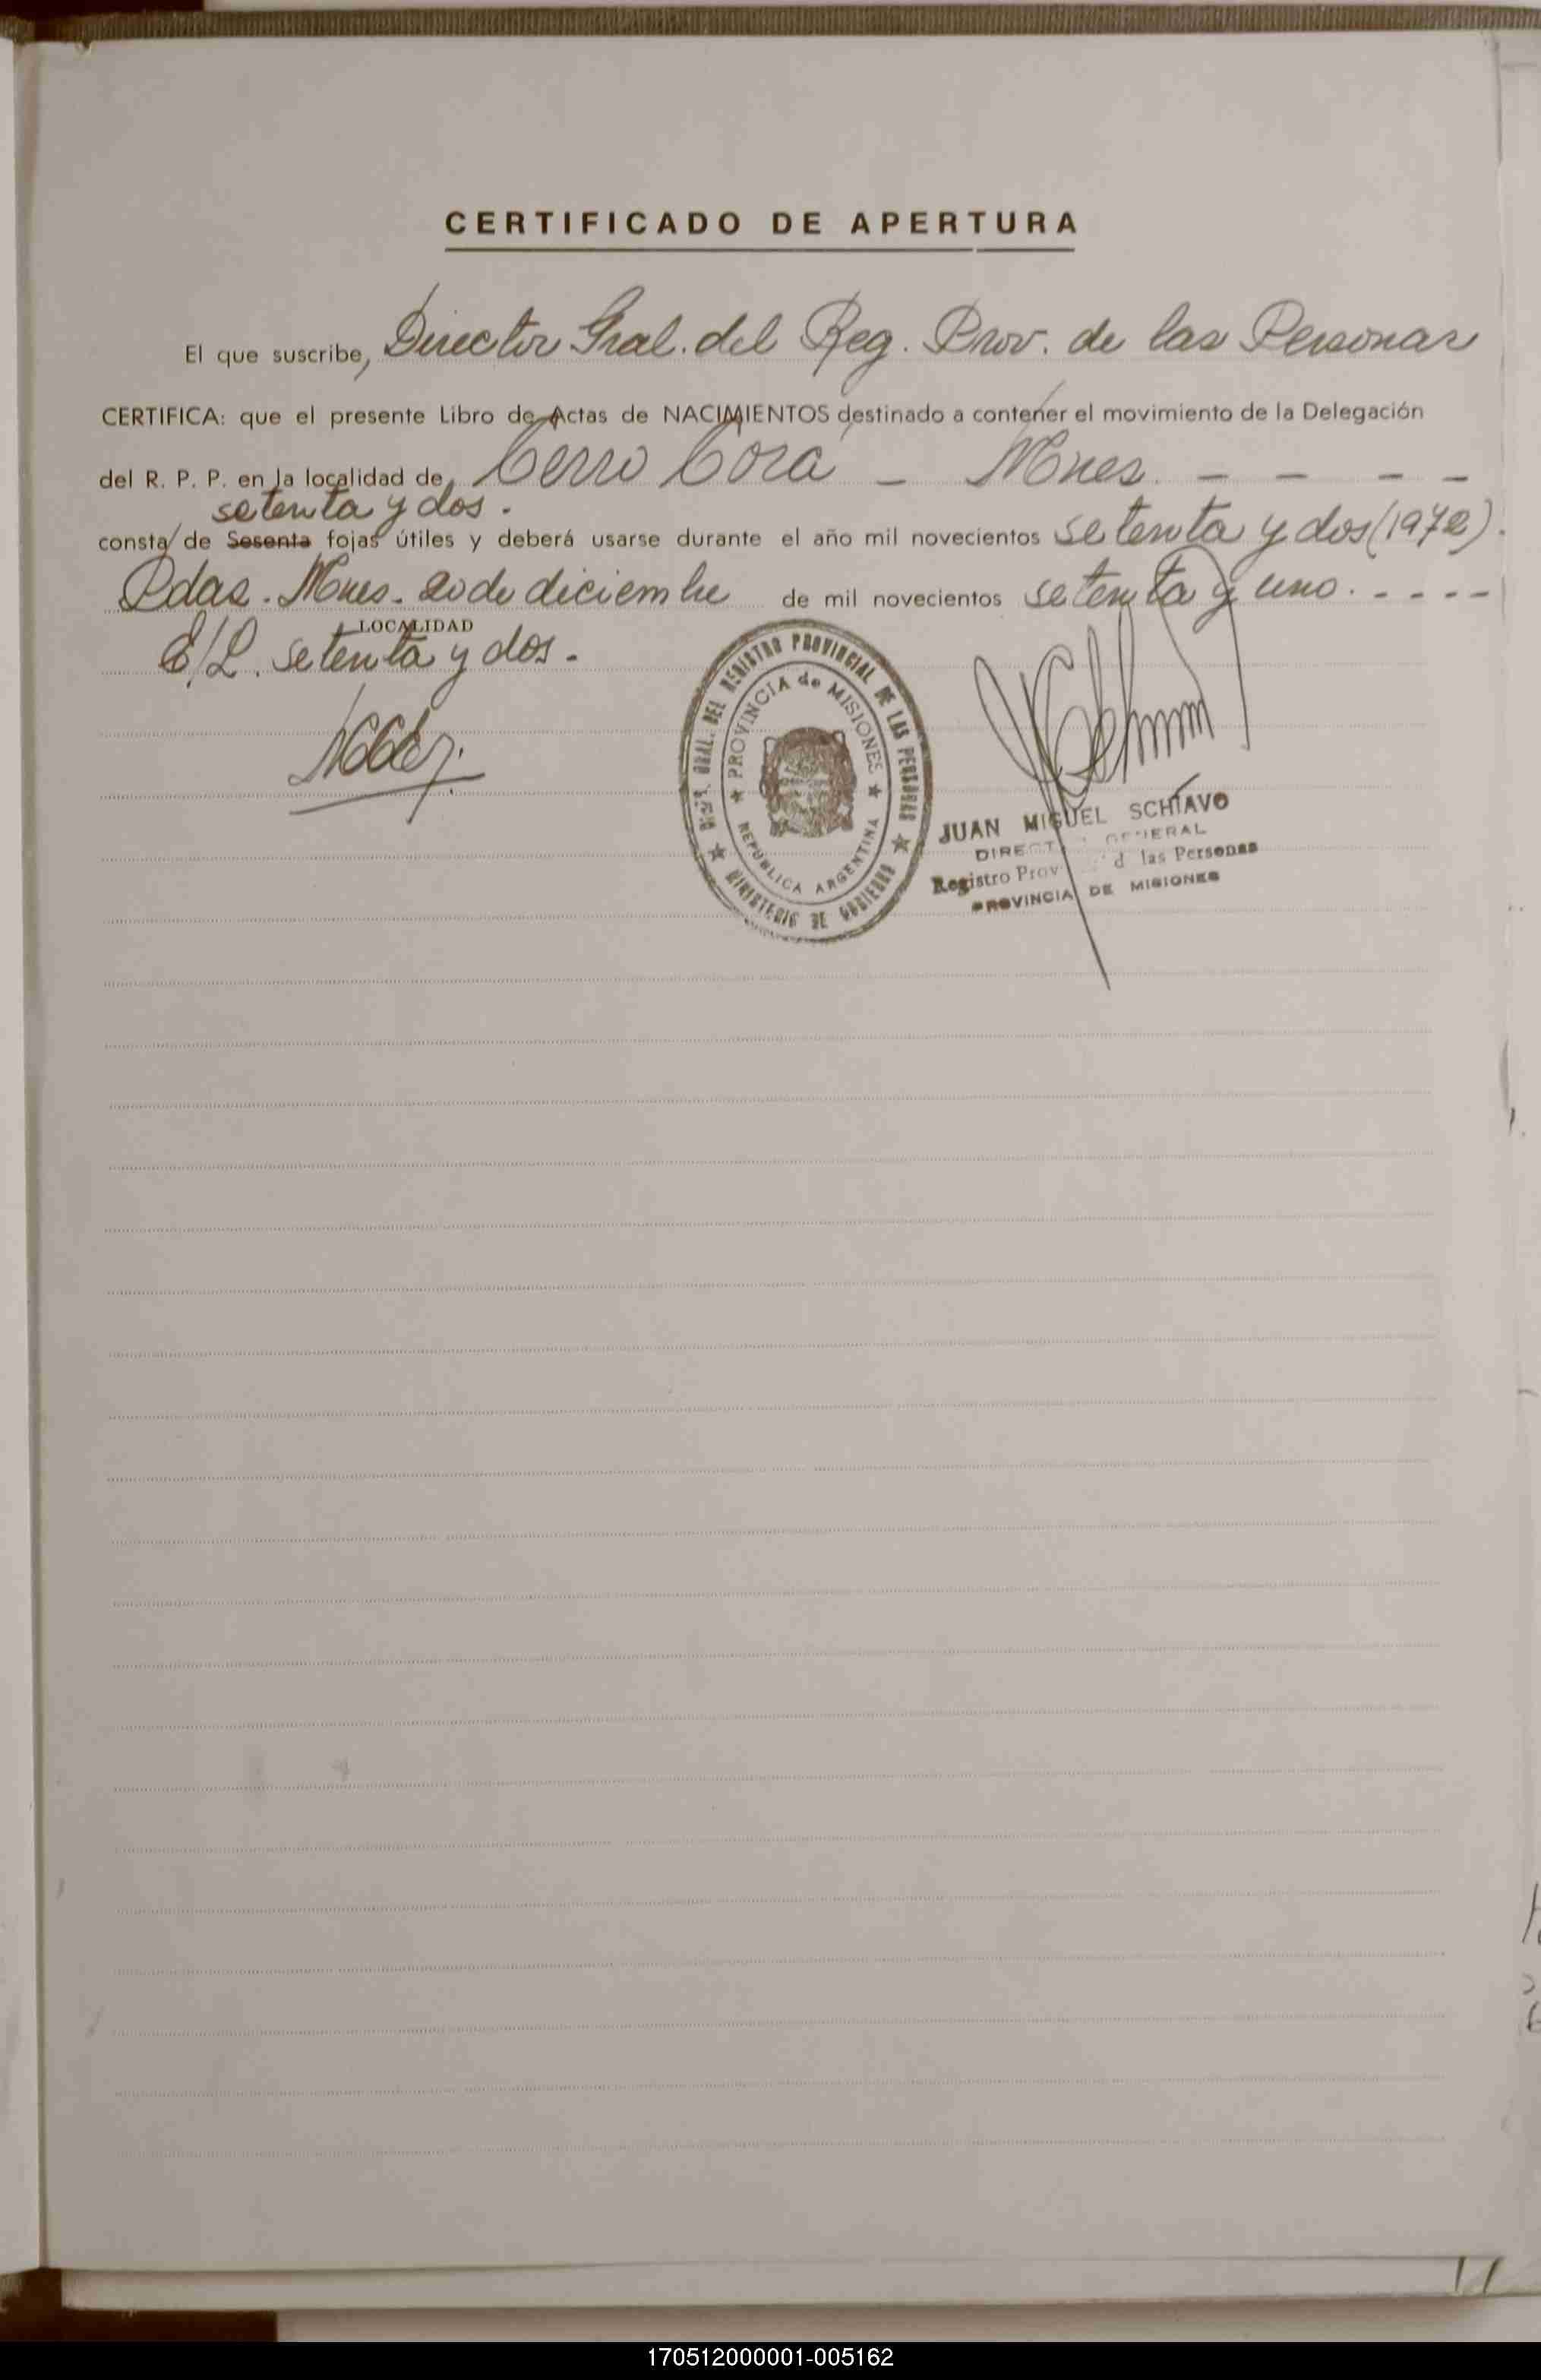 CERTIFICADO DE APERTURA
El que suscribe, Director Gral. del Reg. Prov. de las Personas
CERTIFICA: que el presente Libro de Actas de NACIMIENTOS destinado a contener el movimiento de la Delegación
del R. P. P. en la localidad de Cerro Corá - Mnes. - - - -
setenta y dos.
consta de Sesenta fojas útiles y deberá usarse durante el año mil novecientos setenta y dos (1972).
Pdas. Mnes. 20 de diciembre de mil novecientos setenta y uno. - - - -
LOCALIDAD
E/L. setenta y dos. -
DIREC. GRAL. DEL REGISTRO PROVINCIAL DE LAS PERSONAS
PROVINCIA de MISIONES
REPÚBLICA ARGENTINA
MINISTERIO DE GOBIERNO
JUAN MIGUEL SCHIAVO
DIRECT GENERAL
Registro Prov d las Personas
PROVINCIA DE MISIONES
170512000001-005162